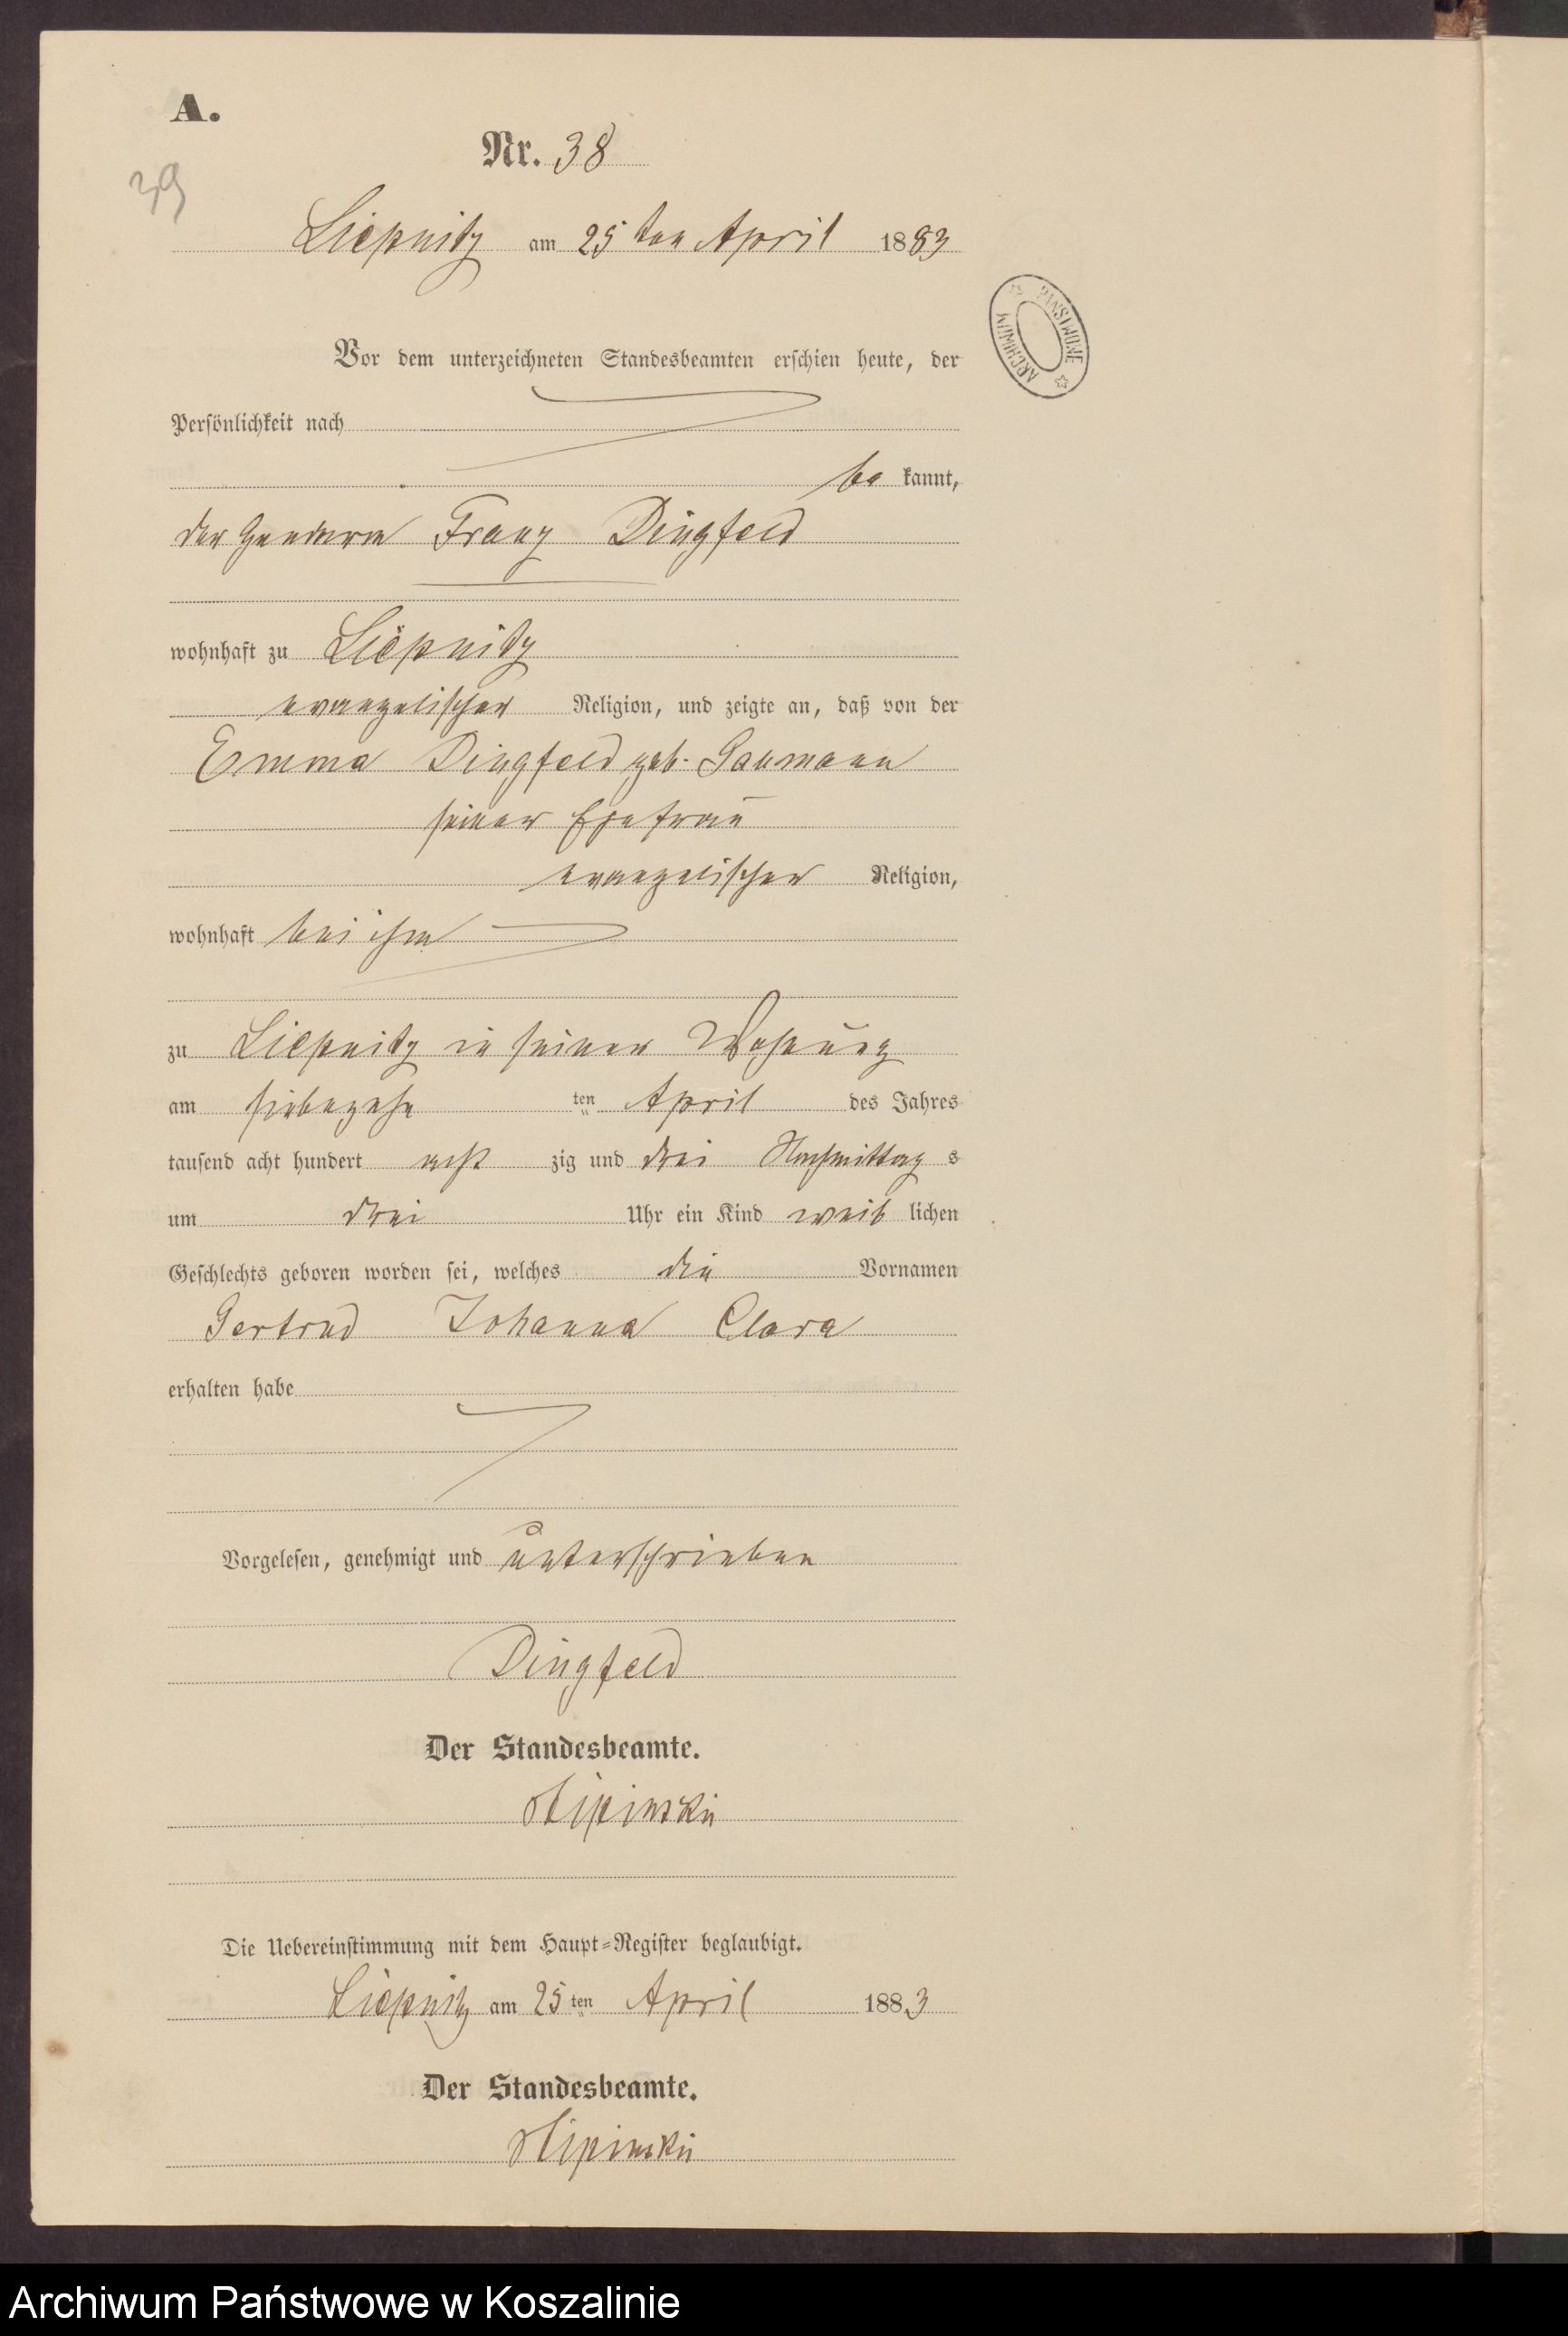 A.
Nr. 38
39
Liepnitz am 25 ten April 1883
ARCHIWUM PAŃSTWOWE
Vor dem unterzeichneten Standesbeamten erschien heute, der
Persönlichkeit nach
be kannt,
der Gendarm Franz Dingfeld
wohnhaft zu Liepnitz
evangelischer Religion, und zeigte an, daß von der
Emma Dingfeld geb. Saumann
seiner Ehefrau
evangelischer Religion,
wohnhaft bei ihm
zu Liepnitz in seiner Wohnung
am siebzehn ten April des Jahres
tausend acht hundert acht zig und drei Nachmittag s
um drei Uhr ein Kind weib lichen
Geschlechts geboren worden sei, welches die Vornamen
Gertrud Johanna Clara
erhalten habe
Vorgelesen, genehmigt und unterschrieben
Dingfeld
Der Standesbeamte.
Die Uebereinstimmung mit dem Haupt-Register beglaubigt.
Liepnitz am 25 ten April 1883
Der Standesbeamte.
Archiwum Państwowe w Koszalinie